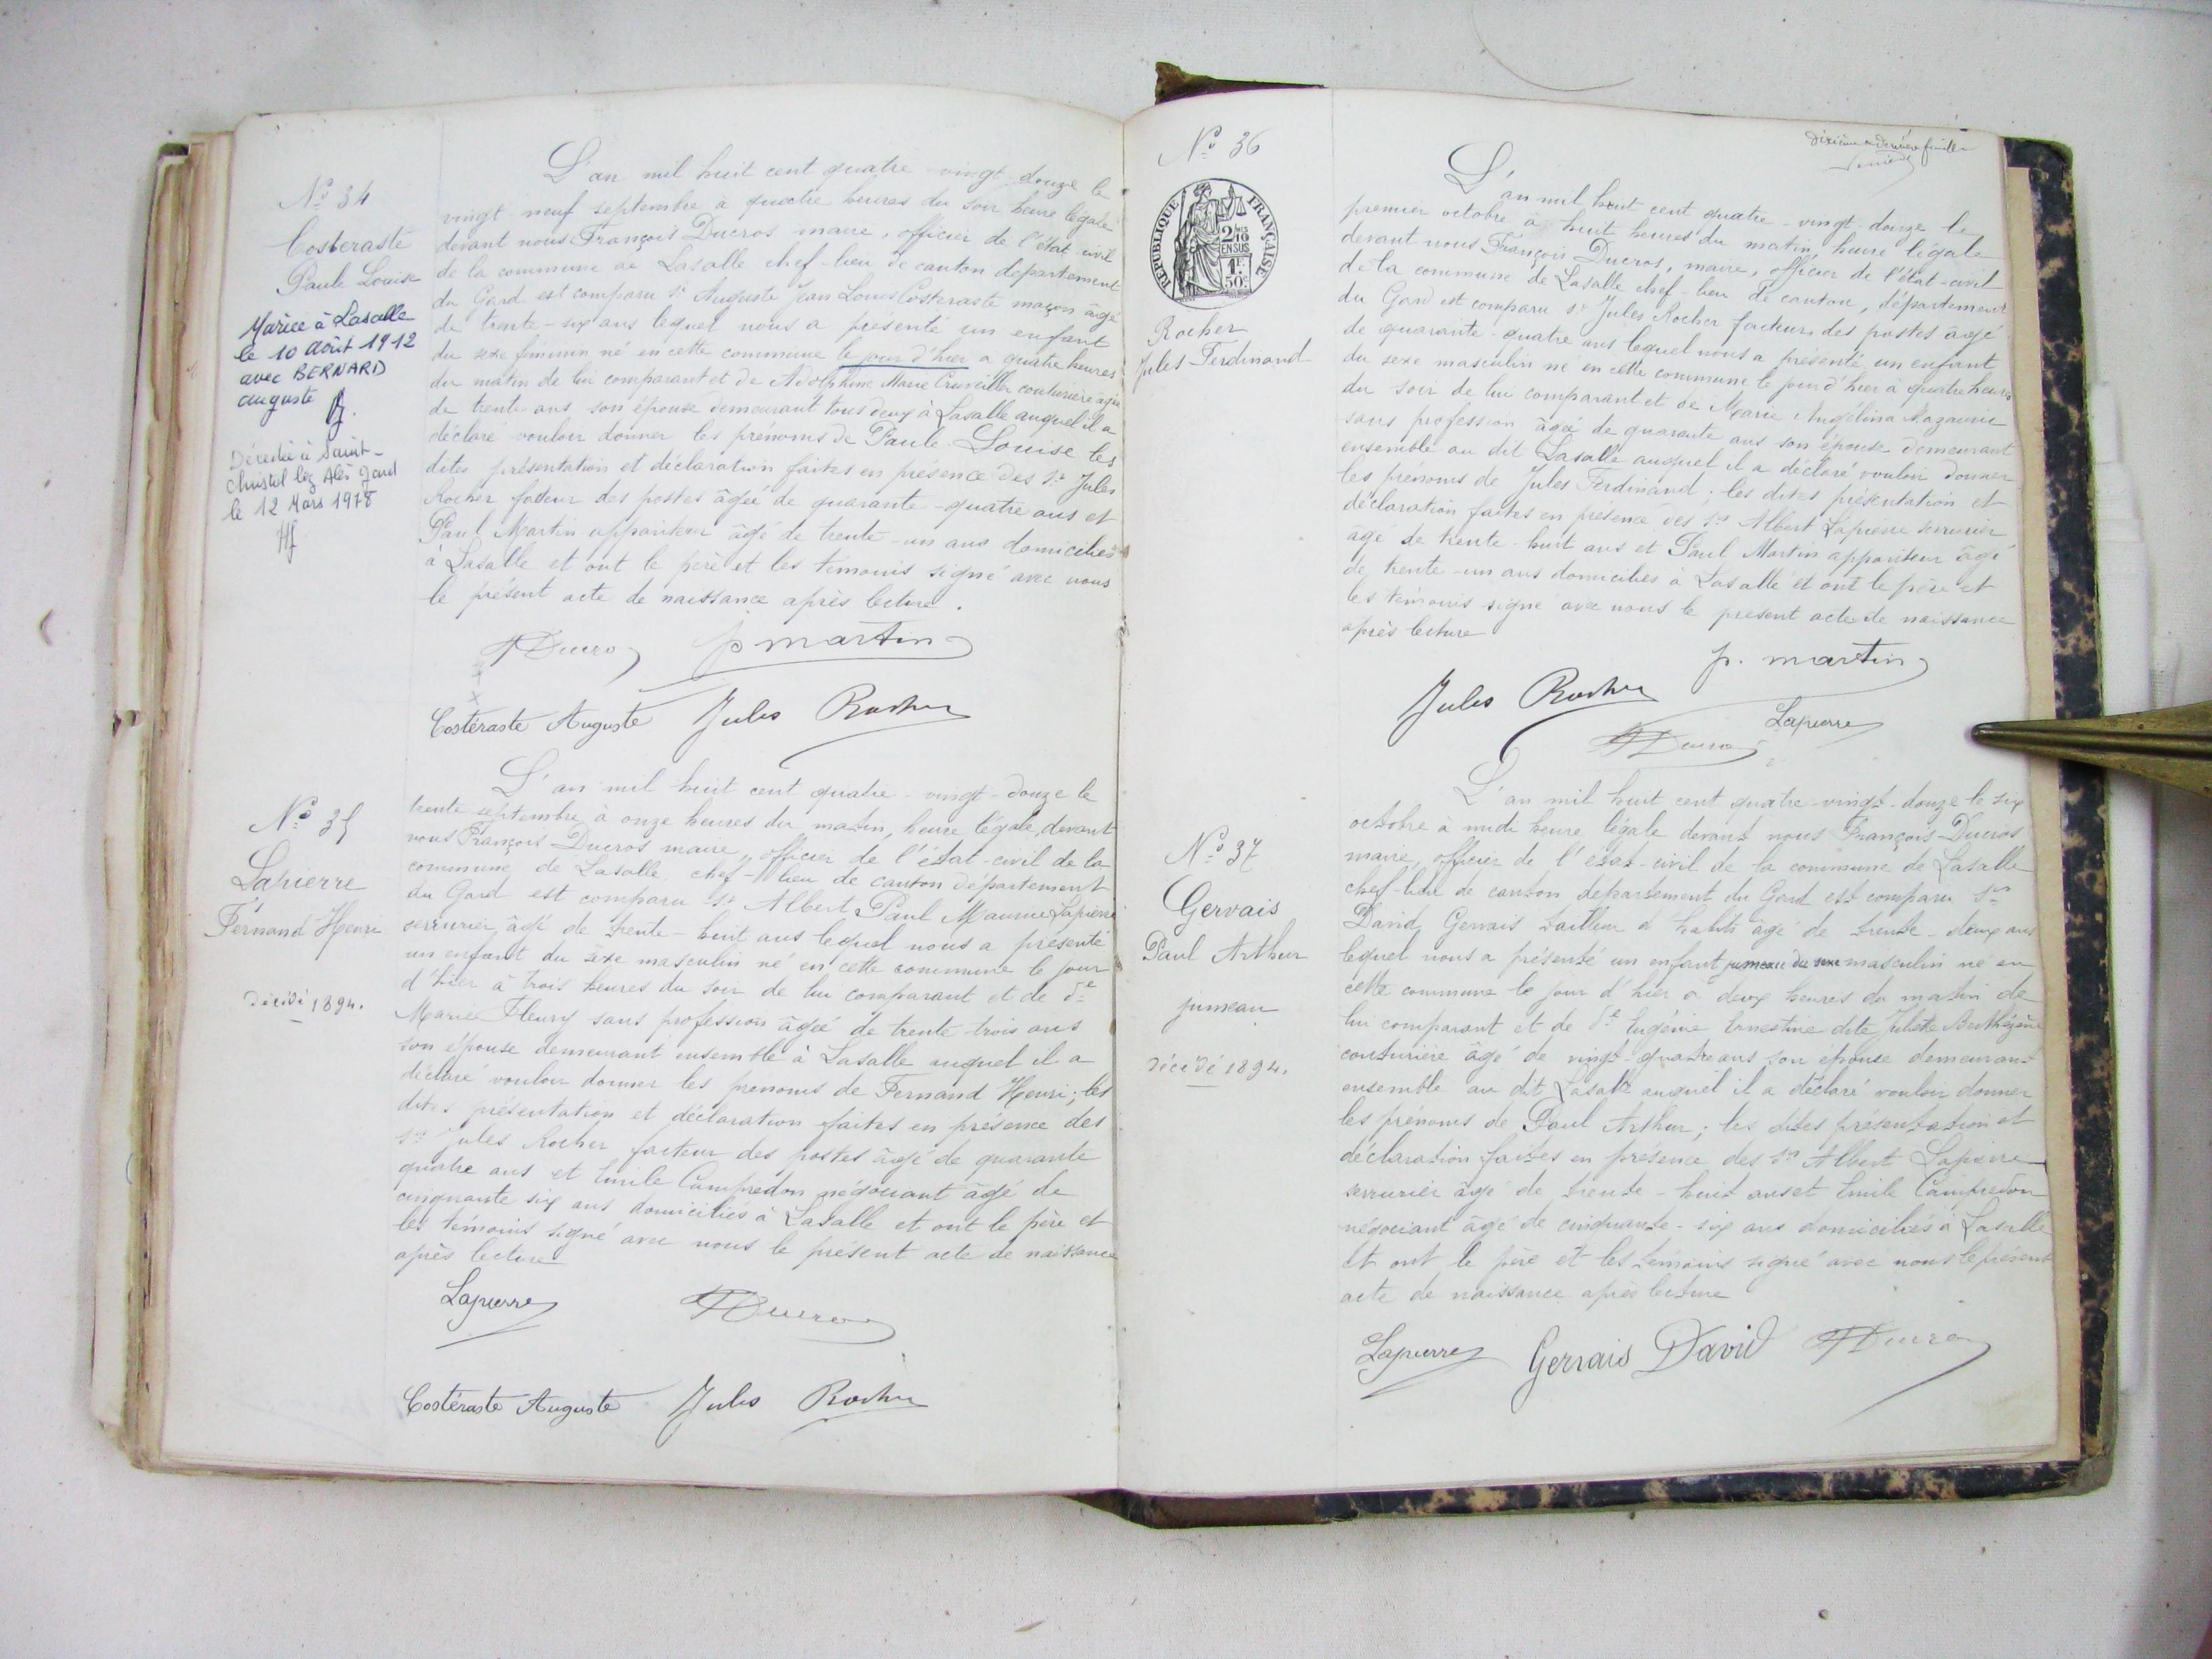 N° 34
Costeraste
Paule Louise
Mariée à Lasalle
le 10 août 1912
avec BERNARD
auguste
Décédée à Saint-
Christol lez Alès Gard
le 12 Mars 1978
L'an mil huit cent quatre-vingt-douze le
vingt neuf septembre à quatre heures du soir heure légale
devant nous François Ducros maire, officier de l'état-civil
de la commune de Lasalle chef-lieu de canton département
du Gard est comparu sr Auguste Jean Louis Costeraste maçon âgé
de trente-six ans lequel nous a présenté un enfant
du sexe féminin né en cette commune le jour d'hier à quatre heures
du matin de lui comparant et de Adolphine Marie Cruveiller couturière âgée
de trente ans son épouse demeurant tous deux à Lasalle auquel il a
déclaré vouloir donner les prénoms de Paule Louise les
dites présentation et déclaration faites en présence des srs Jules
Rocher facteur des postes âgée de quarante-quatre ans et
Paul Martin appariteur âgé de trente-un ans domiciliés
à Lasalle et ont le père et les témoins signé avec nous
le présent acte de naissance après lecture.
FDucros p martin
Costeraste Auguste Jules Rocher
N° 35
Lapierre
Fernand Henri
décédé 1894.
L'an mil huit cent quatre-vingt-douze le
trente septembre à onze heures du matin, heure légale, devant
nous François Ducros maire, officier de l'état-civil de la
commune de Lasalle, chef-lieu de canton département
du Gard est comparu sr Albert Paul Maurice Lapierre
serrurier, âgé de trente-huit ans lequel nous a présenté
un enfant du sexe masculin né en cette commune le jour
d'hier à trois heures du soir de lui comparant et de de
Marie Fleury sans profession âgée de trente-trois ans
son épouse demeurant ensemble à Lasalle auquel il a
déclaré vouloir donner les prénoms de Fernand Henri; les
dites présentation et déclaration faites en présence des
srs Jules Rocher facteur des postes âgé de quarante
quatre ans et Emile Campredon négociant âgé de
cinquante six ans domiciliés à Lasalle et ont le père et
les témoins signé avec nous le présent acte de naissance
après lecture
Lapierre FDucros
Costeraste Auguste Jules Rocher
N° 36
RÉPUBLIQUE FRANÇAISE
2/10
EN SUS
1F
50c
Rocher
Jules Ferdinand
dixième & dernière feuille
L'an mil huit cent quatre-vingt-douze le
premier octobre à huit heures du matin, heure légale
devant nous François Ducros, maire, officier de l'état-civil
de la commune de Lasalle chef-lieu de canton, département
du Gard est comparu sr Jules Rocher facteur des postes âgé
de quarante-quatre ans lequel nous a présenté un enfant
du sexe masculin né en cette commune le jour d'hier à quatre heures
du soir de lui comparant et de Marie Angélina Mazaurin
sans profession âgée de quarante ans son épouse demeurant
ensemble au dit Lasalle auquel il a déclaré vouloir donner
les prénoms de Jules Ferdinand; les dites présentation et
déclaration faites en présence des srs Albert Lapierre serrurier
âgé de trente-huit ans et Paul Martin appariteur âgé
de trente-un ans domiciliés à Lasalle et ont le père et
les témoins signé avec nous le présent acte de naissance
après lecture
p. martin
Jules Rocher
Lapierre
FDucros
N° 37
Gervais
Paul Arthur
jumeau
décédé 1894.
L'an mil huit cent quatre-vingt-douze le six
octobre à midi heure légale devant nous François Ducros
maire, officier de l'état-civil de la commune de Lasalle
chef-lieu de canton département du Gard est comparu sr
David Gervais tailleur d'habits âgé de trente-deux ans
lequel nous a présenté un enfant jumeau du sexe masculin né en
cette commune le jour d'hier à deux heures du matin de
lui comparant et de de Eugénie Ernestine dite Juliette Berthézène
couturière âgé de vingt-quatre ans son épouse demeurant
ensemble au dit Lasalle auquel il a déclaré vouloir donner
les prénoms de Paul Arthur; les dites présentation et
déclaration faites en présence des srs Albert Lapierre
serrurier âgé de trente-huit ans et Emile Campredon
négociant âgé de cinquante-six ans domiciliés à Lasalle
et ont le père et les témoins signé avec nous le présent
acte de naissance après lecture
Lapierre Gervais David FDucros